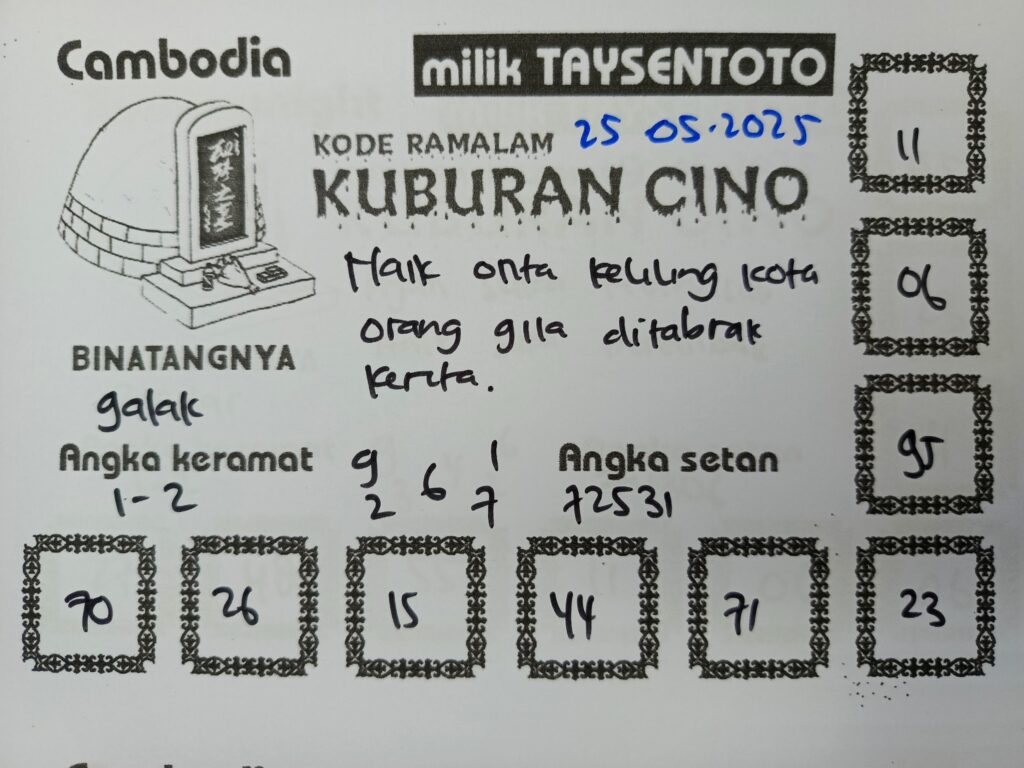 Cambodia
milik TAYSENTOTO
KODE RAMALAM 25 05.2025
KUBURAN CINO
Naik onta keliling kota
orang gila ditabrak
kereta.
BINATANGNYA
galak
Angka keramat
1-2
9 1
6
2 7
Angka setan
72531
11
06
95
70 26 15 44 71 23